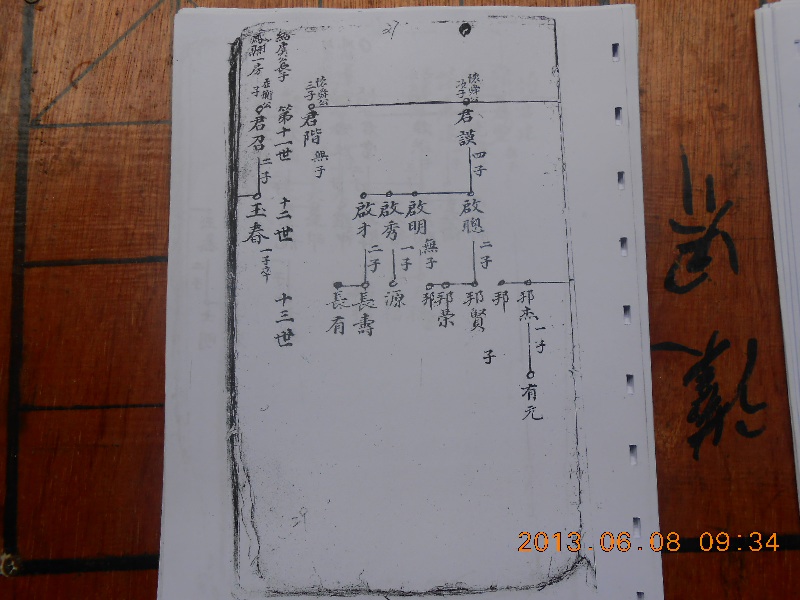 27
次子
君謨
四子
啟聰
二子
啟明
無子
啟秀
一子
源
啟才
二子
長壽
長有
邦杰
一子
有元
邦
邦賢
子
邦榮
邦
三子
君階
無子
第十一世
十二世
十三世
一房
子
君召
二子
玉春
一子
29
2013.06.08 09:34